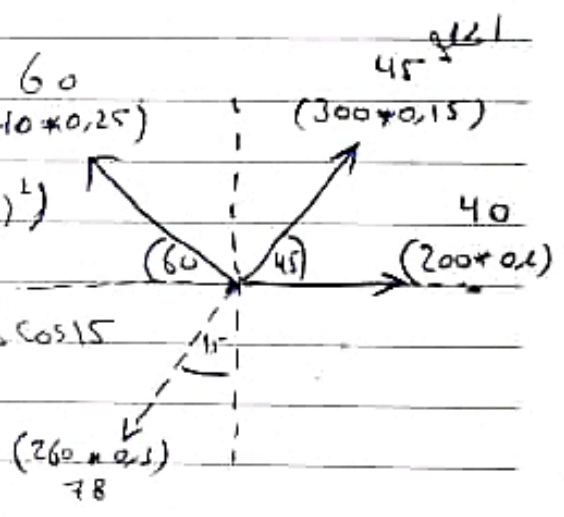 60
10*0,25)
45
(300*0,15)
)²)
40
(60
45)
(200*0,2)
cos15
15
(260*0,3)
78